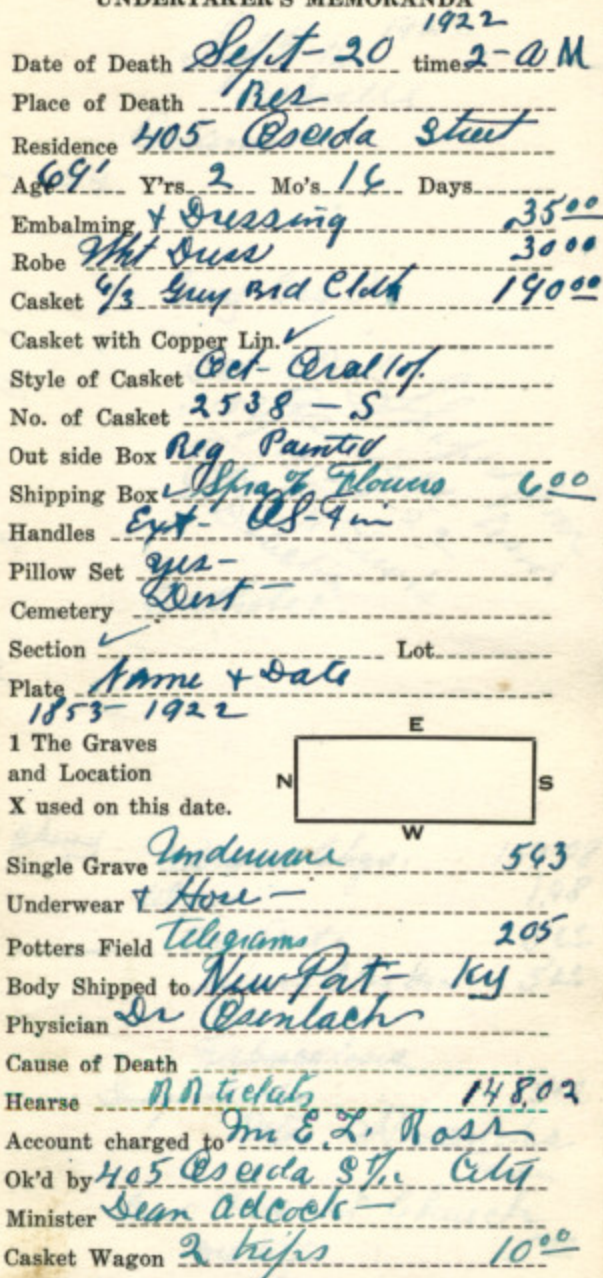 UNDERTAKER'S MEMORANDA
1922
Date of Death Sept - 20 time 2 - a M
Place of Death Res
Residence 405 Osceola Street
Age 69 Y'rs 2 Mo's 16 Days
Embalming & Dressing 35 00
Robe Wht Dress 30 00
Casket 6/3 Grey Brd Cloth 190 00
Casket with Copper Lin. ✓
Style of Casket Oct - Oval Top
No. of Casket 2538 - S
Out side Box Reg Painted
Shipping Box ✓ Spray Flowers 6 00
Handles Ext - OS-Fin
Pillow Set yes -
Cemetery
Section ✓ Lot
Plate Name & Date
1853 - 1922
1 The Graves
and Location
X used on this date.
E
N S
W
Single Grave Underware 563
Underwear & Hose -
Potters Field Telegrams 205
Body Shipped to New Port - Ky
Physician Dr
Cause of Death
Hearse RR tickets 148.02
Account charged to E. L. Ross
Ok'd by 405 Osceola St. City
Minister Dean Adcock -
Casket Wagon 2 trips 10 00